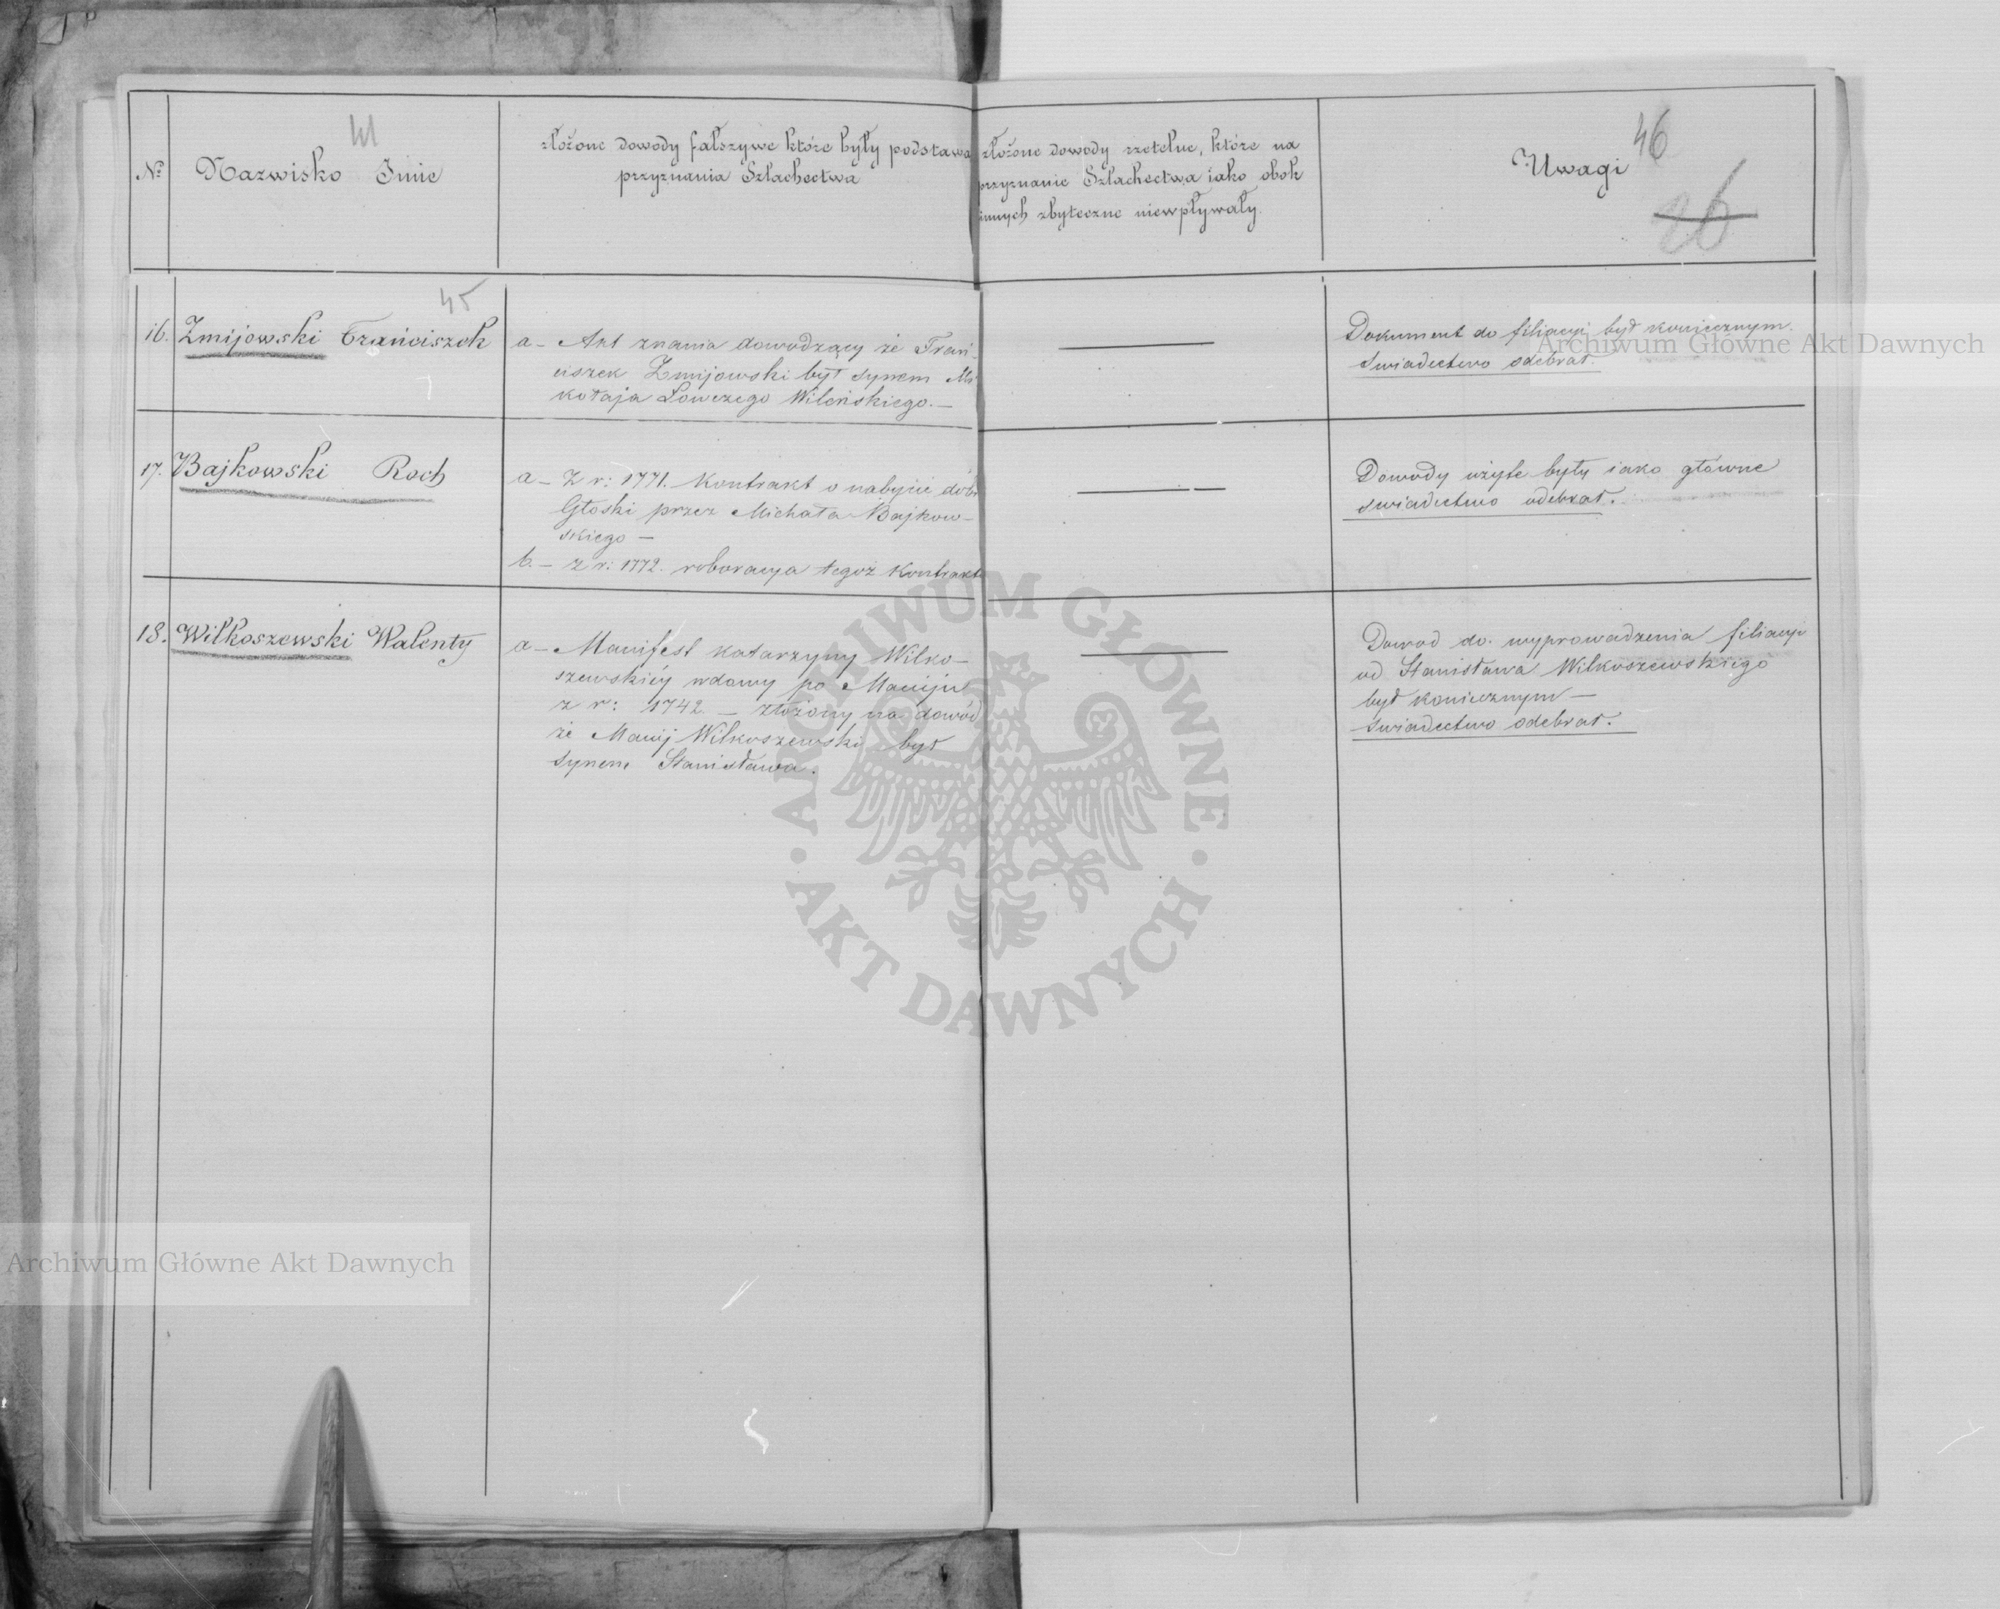 46
26
№ Nazwisko Imie
złożone dowody fałszywe które były podstawą
przyznania Szlachectwa
złożone dowody rzetelne, które na
przyznanie Szlachectwa iako obok
innych zbyteczne niewpływały.
Uwagi
45
16. Zmijowski Franciszek
a – Akt znania dowodzący że Fran-
ciszek Zmijowski był synem Mi-
kołaja Łowczego Wileńskiego. —
Dokument do filiacyi był koniecznym.
świadectwo odebrał.
17. Bajkowski Roch
a – Z r: 1771. Kontrakt o nabycie dóbr
Głoski przez Michała Bajkow-
skiego —
b. – z r: 1772. roboracya tegoż Kontraktu
Dowody użyte były iako główne
świadectwo odebrał.
18. Wilkoszewski Walenty
a – Manifest Katarzyny Wilko-
szewskiéy wdowy po Macieju
z r: 1742 – złożony na dowód
że Maciej Wilkoszewski był
synem Stanisława.
Dowod do wyprowadzenia filiacyi
od Stanisława Wilkoszewskiego
był koniecznym —
świadectwo odebrał.
Archiwum Główne Akt Dawnych
ARCHIWUM GŁÓWNE · AKT DAWNYCH ·
Archiwum Główne Akt Dawnych